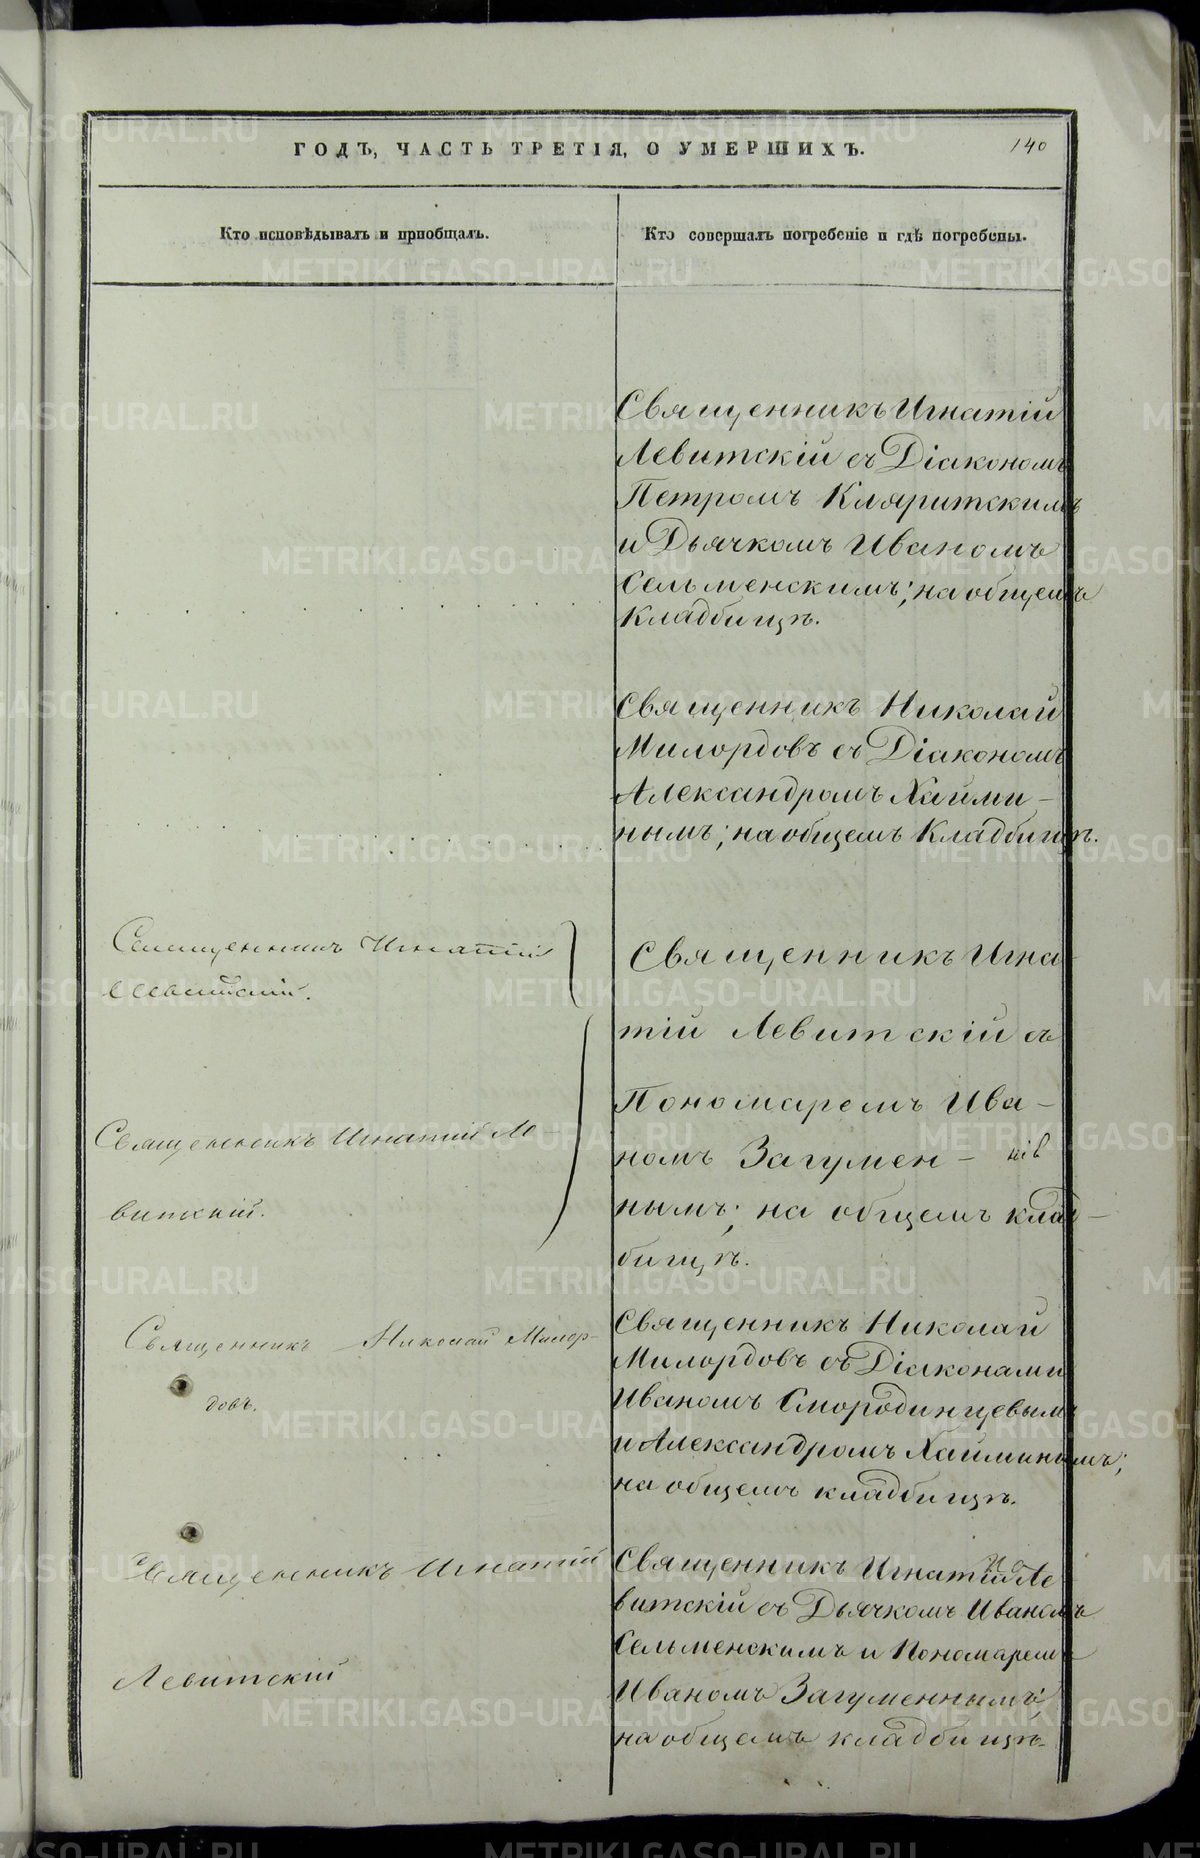 ГОДЪ, ЧАСТЬ ТРЕТІЯ, О УМЕРШИХЪ.
140
Кто исповѣдывалъ и пріобщалъ.
Кто совершалъ погребеніе и гдѣ погребены.
Священникъ Игнатій
Левитскій съ Діакономъ
Петромъ Кляритскимъ
и Дьячкомъ Иваномъ
Сельменскимъ; на общемъ
Кладбищѣ.
Священникъ Николай
Милордовъ съ Діакономъ
Александромъ Хайми-
нымъ; на общемъ Кладбищѣ.
Священникъ Игнатій
Левитскій.
Священникъ Игна-
тій Левитскій съ
Пономаремъ Ива-
номъ Загумен-
нымъ; на общемъ клад-
бищѣ.
Священникъ Игнатій Ле-
витскій.
Священникъ Николай Милор-
довъ.
Священникъ Николай
Милордовъ съ Діаконами
Иваномъ Смородинцевымъ
и Александромъ Хайминымъ;
на общемъ кладбищѣ.
Священникъ Игнатій
Левитскій
Священникъ Игнатій Ле-
витскій съ Дьячкомъ Иваномъ
Сельменскимъ и Пономаремъ
Иваномъ Загуменнымъ;
на общемъ кладбищѣ.
METRIKI.GASO-URAL.RU